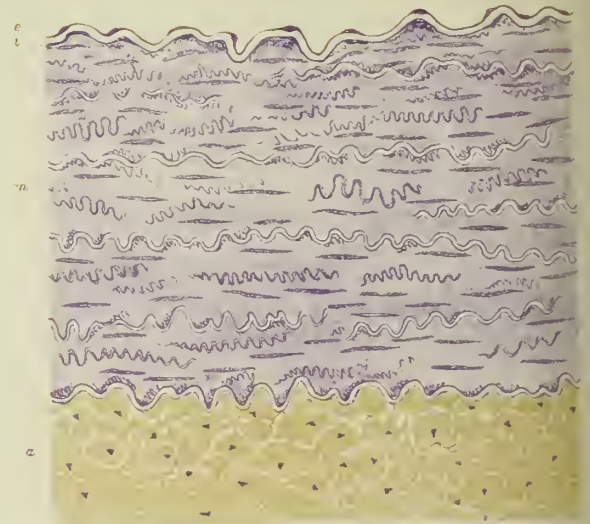 e
i
m
a